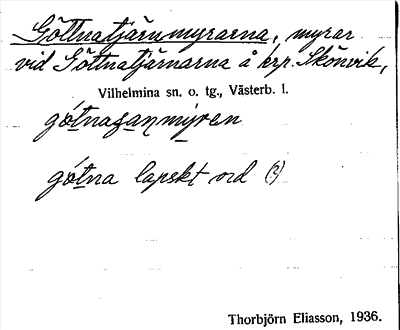 Göttnatjärnmyrarna, myrar
vid Göttnatjärnarna å krp. Skönvik,
Vilhelmina sn. o. tg., Västerb. l.
götnaʒaṇmyren
götna lapskt ord (?)
Thorbjörn Eliasson, 1936.